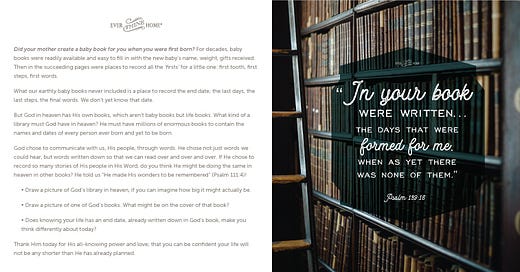 EVER THINE HOME®
Did your mother create a baby book for you when you were first born? For decades, baby
books were readily available and easy to fill in with the new baby's name, weight, gifts received.
Then in the succeeding pages were places to record all the 'firsts' for a little one: first tooth, first
steps, first words.
What our earthly baby books never included is a place to record the end date, the last days, the
last steps, the final words. We don't yet know that date.
But God in heaven has His own books, which aren't baby books but life books. What kind of a
library must God have in heaven? He must have millions of enormous books to contain the
names and dates of every person ever born and yet to be born.
God chose to communicate with us, His people, through words. He chose not just words we
could hear, but words written down so that we can read over and over and over. If He chose to
record so many stories of His people in His Word, do you think He might be doing the same in
heaven in other books? He told us "He made His wonders to be remembered" (Psalm 111:4)!
• Draw a picture of God's library in heaven, if you can imagine how big it might actually be.
• Draw a picture of one of God's books. What might be on the cover of that book?
• Does knowing your life has an end date, already written down in God's book, make you
think differently about today?
Thank Him today for His all-knowing power and love, that you can be confident your life will
not be any shorter than He has already planned.
"In your book
WERE WRITTEN...
THE DAYS THAT WERE
formed for me,
WHEN AS YET THERE
WAS NONE OF THEM."
Psalm 139:16